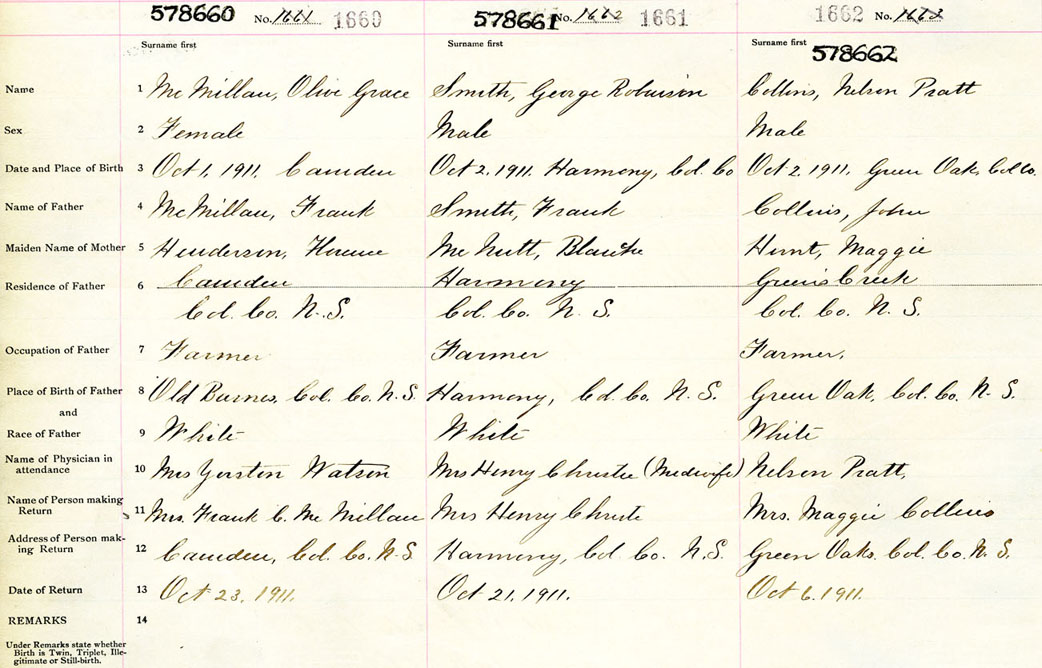 578660 No. 1661 1660 578661 No. 1662 1661 1662 No. 1663
Surname first Surname first Surname first
578662
Name 1 McMillan, Olive Grace Smith, George Robinson Collins, Nelson Pratt
Sex 2 Female Male Male
Date and Place of Birth 3 Oct 1, 1911, Camden Oct 2, 1911. Harmony, Col. Co Oct 2, 1911, Green Oak, Col Co.
Name of Father 4 McMillan, Frank Smith, Frank Collins, John
Maiden Name of Mother 5 Henderson, Florence McNutt, Blanche Hunt, Maggie
Residence of Father 6 Camden Harmony Greens Creek
Col. Co. N.S. Col. Co. N. S. Col. Co. N. S.
Occupation of Father 7 Farmer Farmer Farmer,
Place of Birth of Father 8 Old Barns, Col. Co. N.S. Harmony, Col. Co. N. S. Green Oak, Col. Co. N. S.
and
Race of Father 9 White White White
Name of Physician in
attendance 10 Mrs Yorston Watson Mrs Henry Christie (Medwife) Nelson Pratt,
Name of Person making
Return 11 Mrs. Frank C. McMillan Mrs Henry Christie Mrs. Maggie Collins
Address of Person mak-
ing Return 12 Camden, Col. Co. N.S Harmony, Col Co. N.S. Green Oaks, Col. Co. N. S.
Date of Return 13 Oct 23, 1911. Oct 21, 1911. Oct 6, 1911.
REMARKS 14
Under Remarks state whether
Birth is Twin, Triplet, Ille-
gitimate or Still-birth.